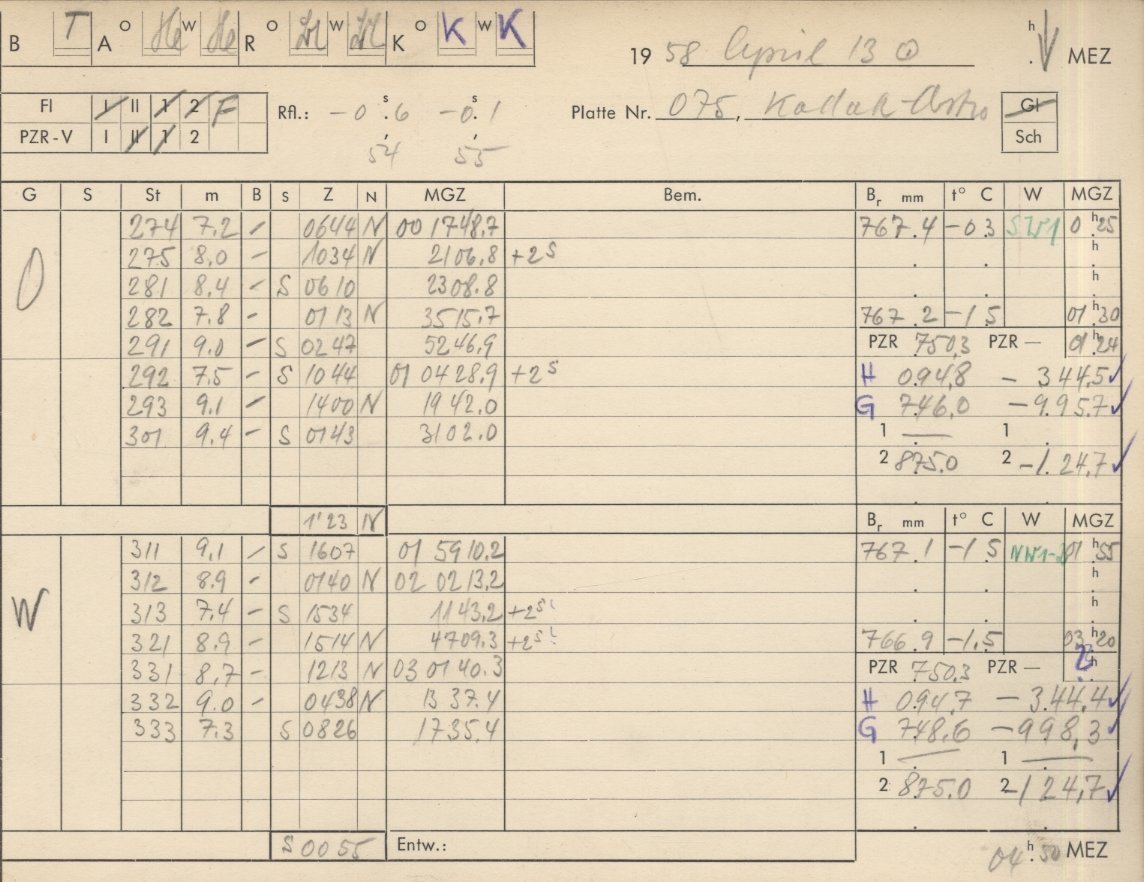 B T A O He W He R O W K O K W K
19 58 April 13 ⊙ h MEZ
Fl I II 1 2 F
PZR-V I II 1 2
Rfl.: -0 s.6 -0 s.1
54 55
Platte Nr. 075, Kodak-Astro
Gl
Sch
G S St m B S Z N MGZ Bem. Br mm t° C W MGZ
O 274 7.2 - 0644 N 00 1748,7 767.4 -0.3 SW1 0 h 25
275 8,0 - 1034 N 2106,8 +2s h
281 8,4 - S 0610 2308.8 h
282 7.8 - 0113 N 3515,7 767.2 -1.5 01 h 30
291 9.0 - S 0247 5246,9 PZR 750,3 PZR — 01 h 24
292 7.5 - S 1044 01 0428,9 +2s H 094,8 - 344,5 ✓
293 9,1 - 1400 N 1942.0 G 746,0 -9.95.7 ✓
301 9.4 - S 0143 3102.0 1 — 1
2 875.0 2 -1.24,7 ✓
1'23 N Br mm t° C W MGZ
W 311 9,1 - S 1607 01 5910.2 767.1 -1.5 01 h 55
312 8.9 - 0140 N 02 0213,2 h
313 7.4 - S 1534 1143,2 +2s! h
321 8.9 - 1514 N 4709.3 +2s! 766.9 -1.5 03 h 20
331 8,7 - 1213 N 03 0140.3 PZR 750.3 PZR — h
332 9.0 - 0438 N 1337.4 H 094.7 - 3.44.4 ✓
333 7.3 S 0826 1735.4 G 748.6 -998,3 ✓
1 — 1 —
2 875.0 2 -124,7 ✓
S 0055 Entw.: 04 h 50 MEZ